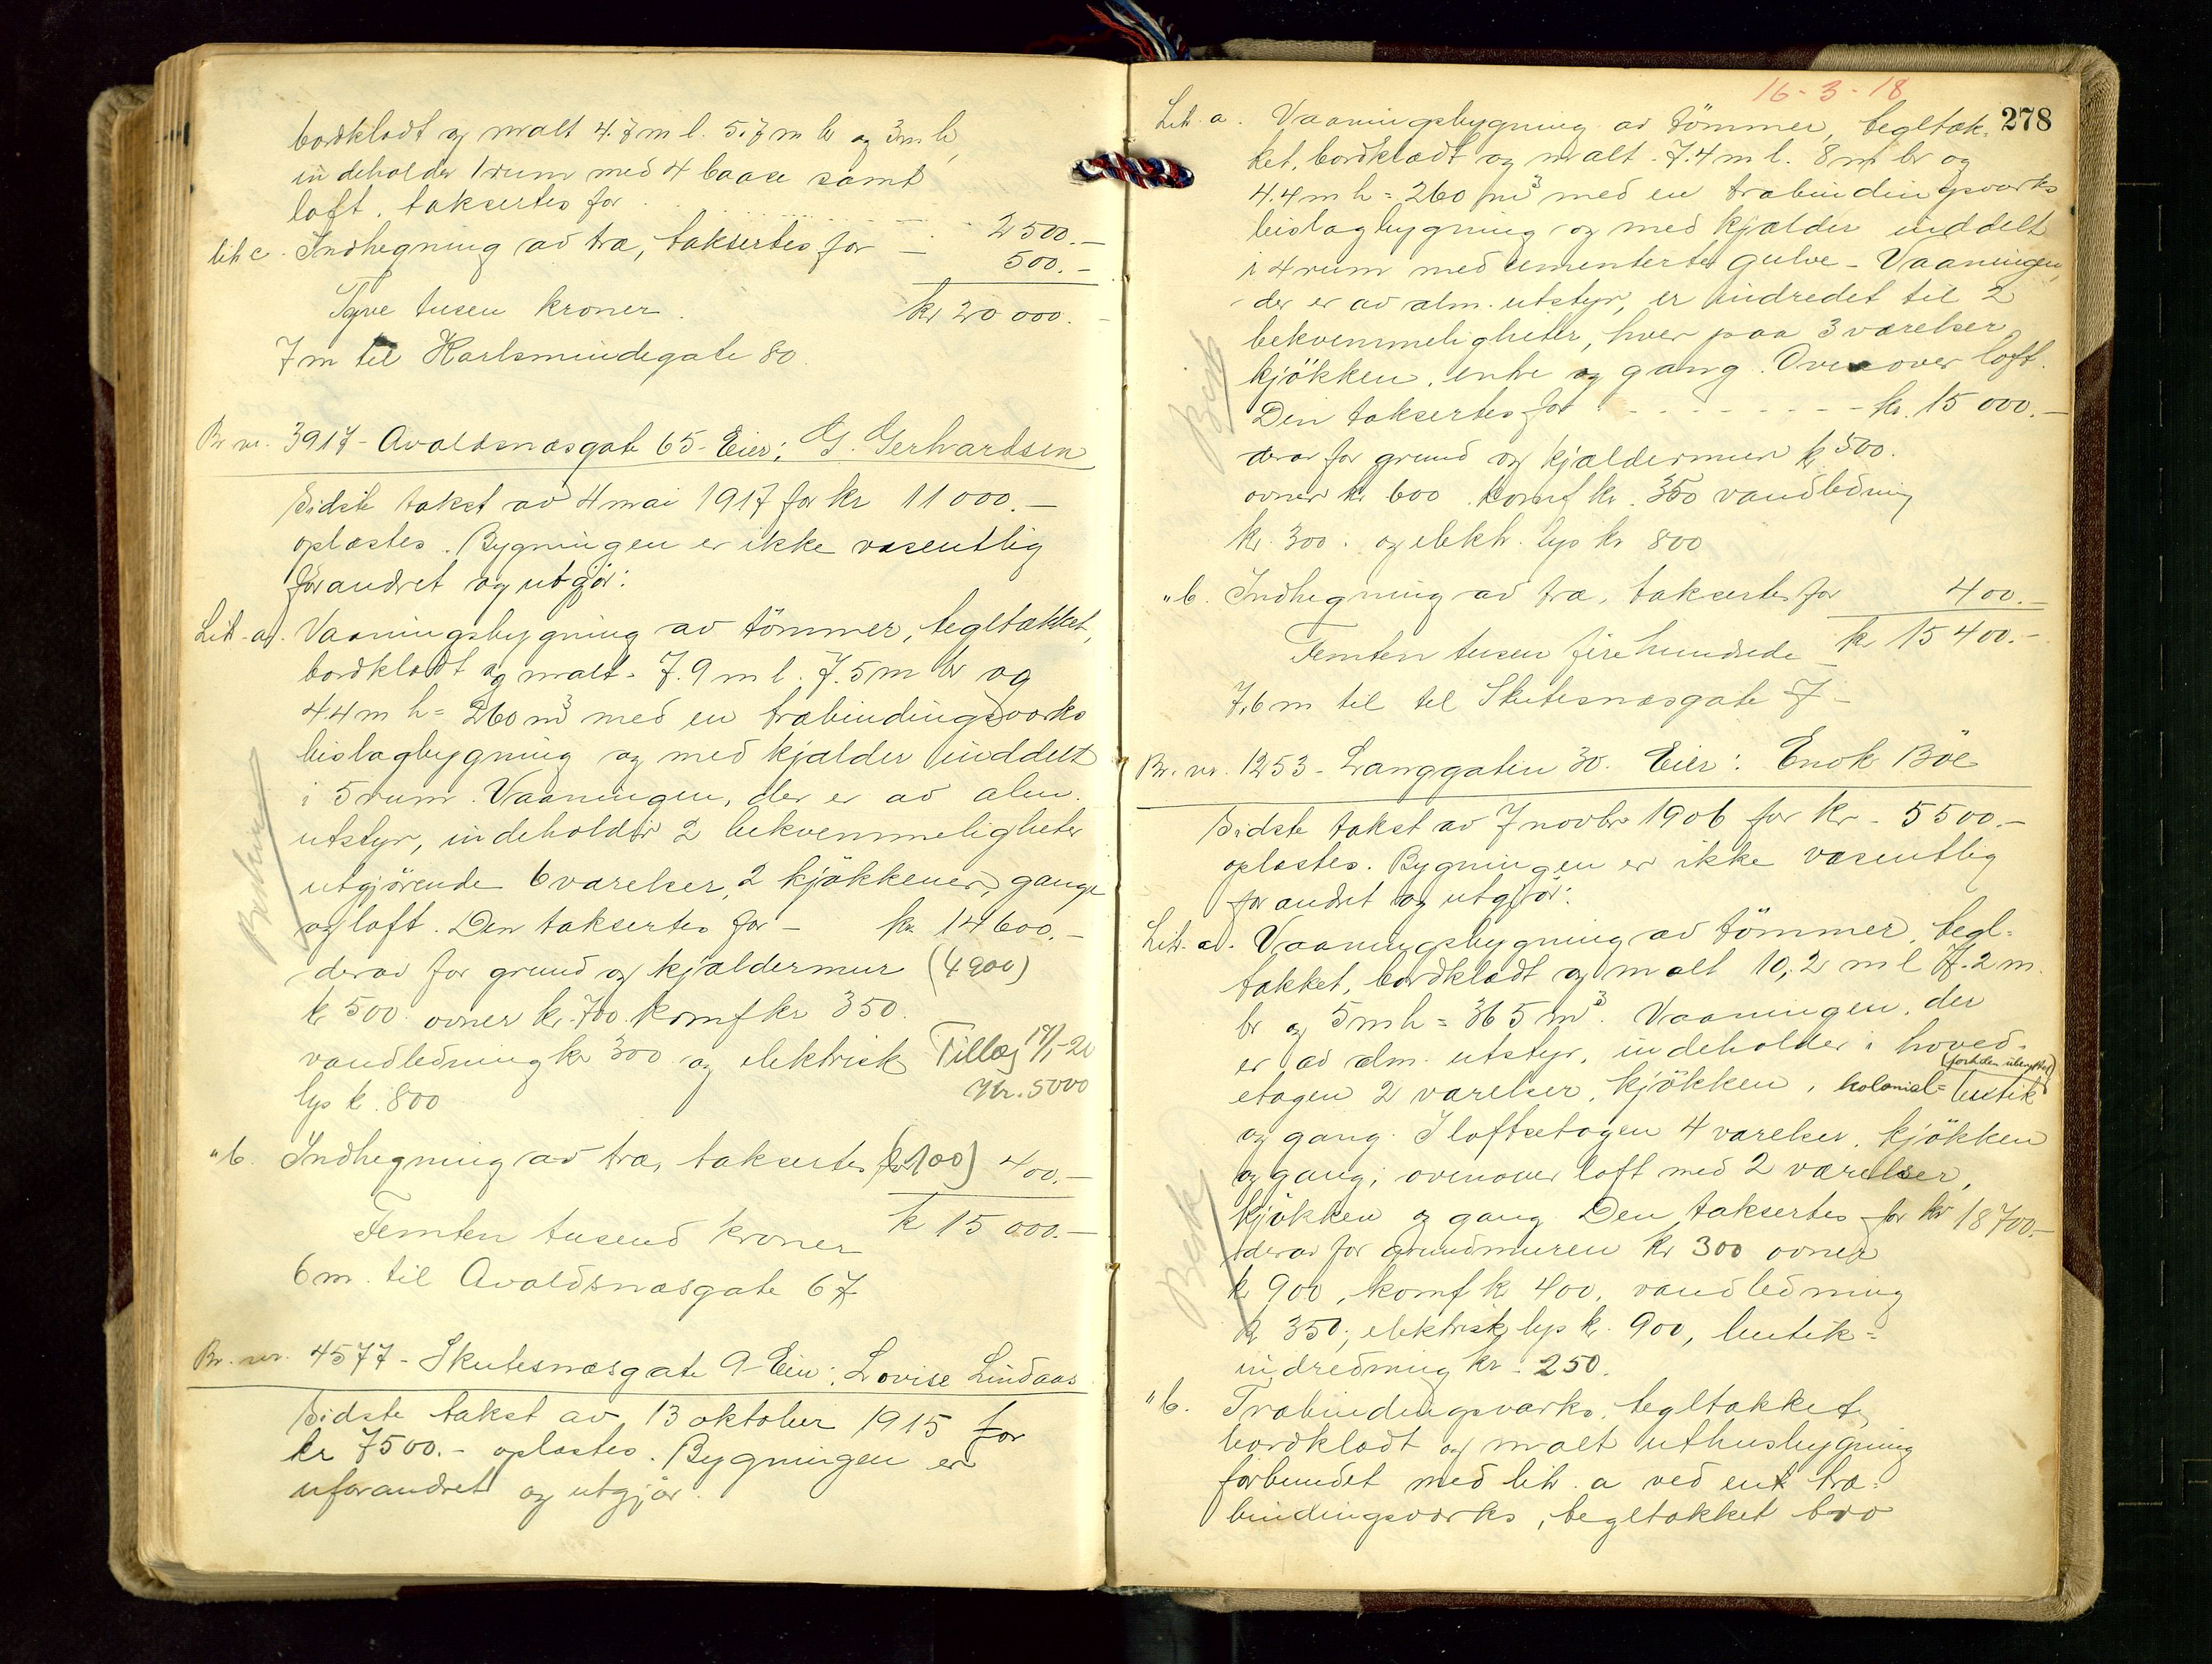 bordklædt og malt 4.7 m l. 5.7 m br og 3 m h,
indeholder 1 rum med 4 baase samt
loft, taksertes for 2500.-
Lit c. Indhegning av træ, taksertes for - 500.-
Tyve tusen kroner. kr 20 000.-
7 m til Karlsmindegate 80.
Br. nr. 3917 - Avaldsnæsgate 65 - Eier: G. Gerhardsen
Sidste takst av 4 mai 1917 for kr 11 000.-
oplæstes. Bygningen er ikke væsentlig
forandret og utgjör:
Lit. a. Vaaningsbygning av tömmer, tegltækket,
bordklædt og malt - 7.9 m l. 7.5 m br og
4.4 m h = 260 m³ med en træbindingsværks
bislagbygning og med kjælder inddelt
i 5 rum. Vaaningen, der er av alm.
utstyr, indeholder 2 bekvemmeligheter
utgjörende 6 værelser, 2 kjökkener, gange
og loft. Den taksertes for - kr. 14600.-
derav for grund og kjældermur (4900)
kr 500. ovner kr. 700. komf kr 350.
vandledning kr 300 og elektrisk Tillæg 17/1-20
lys kr. 800 Kr. 5000
" b. Indhegning av træ, taksertes for (100) 400.-
Femten tusend kroner kr 15 000.-
6 m. til Avaldsnæsgate 67
Br. nr. 4577 - Skutesnæsgate 9 - Eier: Lovise Lindaas
Sidste takst av 13 oktober 1915 for
kr 7500.- oplæstes. Bygningen er
uforandret og utgjör.
16-3-18
278
Lit. a. Vaaningsbygning av tömmer, tegltæk-
ket, bordklædt og malt - 7.4 m l. 8 m br og
4.4 m h = 260 m³ med en træbindingsværks
bislagbygning og med kjælder inddelt
i 4 rum med cementerte gulve - Vaaningen,
der er av alm. utstyr, er indredet til 2
bekvemmeligheter, hver paa 3 værelser,
kjökken, entre og gang. Ovenover loft.
Den taksertes for - - - - kr. 15 000.-
derav for grund og kjældermur kr 500.
ovner kr 600 komf kr. 350 vandledning
kr. 300. og elektr. lys kr 800
" b. Indhegning av træ, taksertes for 400.-
Femten tusen fire hundrede kr 15 400.-
7,6 m til til Skutesnæsgate 7 -
Br. nr. 1253 - Langgaten 30. Eier: Enok Böe
Sidste takst av 7 novbr 1906 for kr - 5500.-
oplæstes. Bygningen er ikke væsentlig
forandret og utgjör:
Lit. a. Vaaningsbygning av tömmer, tegl-
tækket, bordklædt og malt 10,2 m l 7.2 m
br og 5 m h = 365 m³. Vaaningen, der
er av alm. utstyr, indeholder i hoved-
etagen 2 værelser, kjökken, kolonial- butik
og gang. I loftsetagen 4 værelser, kjökken
og gang; ovenover loft med 2 værelser,
kjökken og gang. Den taksertes for kr 18700.-
derav for grundmuren kr 300 ovner
kr 900, komf kr 400, vandledning
kr 350; elektrisk lys kr. 900, butik-
indredning kr - 250.
" b. Træbindingsværks, tegltækket,
bordklædt og malt uthusbygning
forbundet med lit. a ved ent træ-
bindingsværks, tegltækket bro